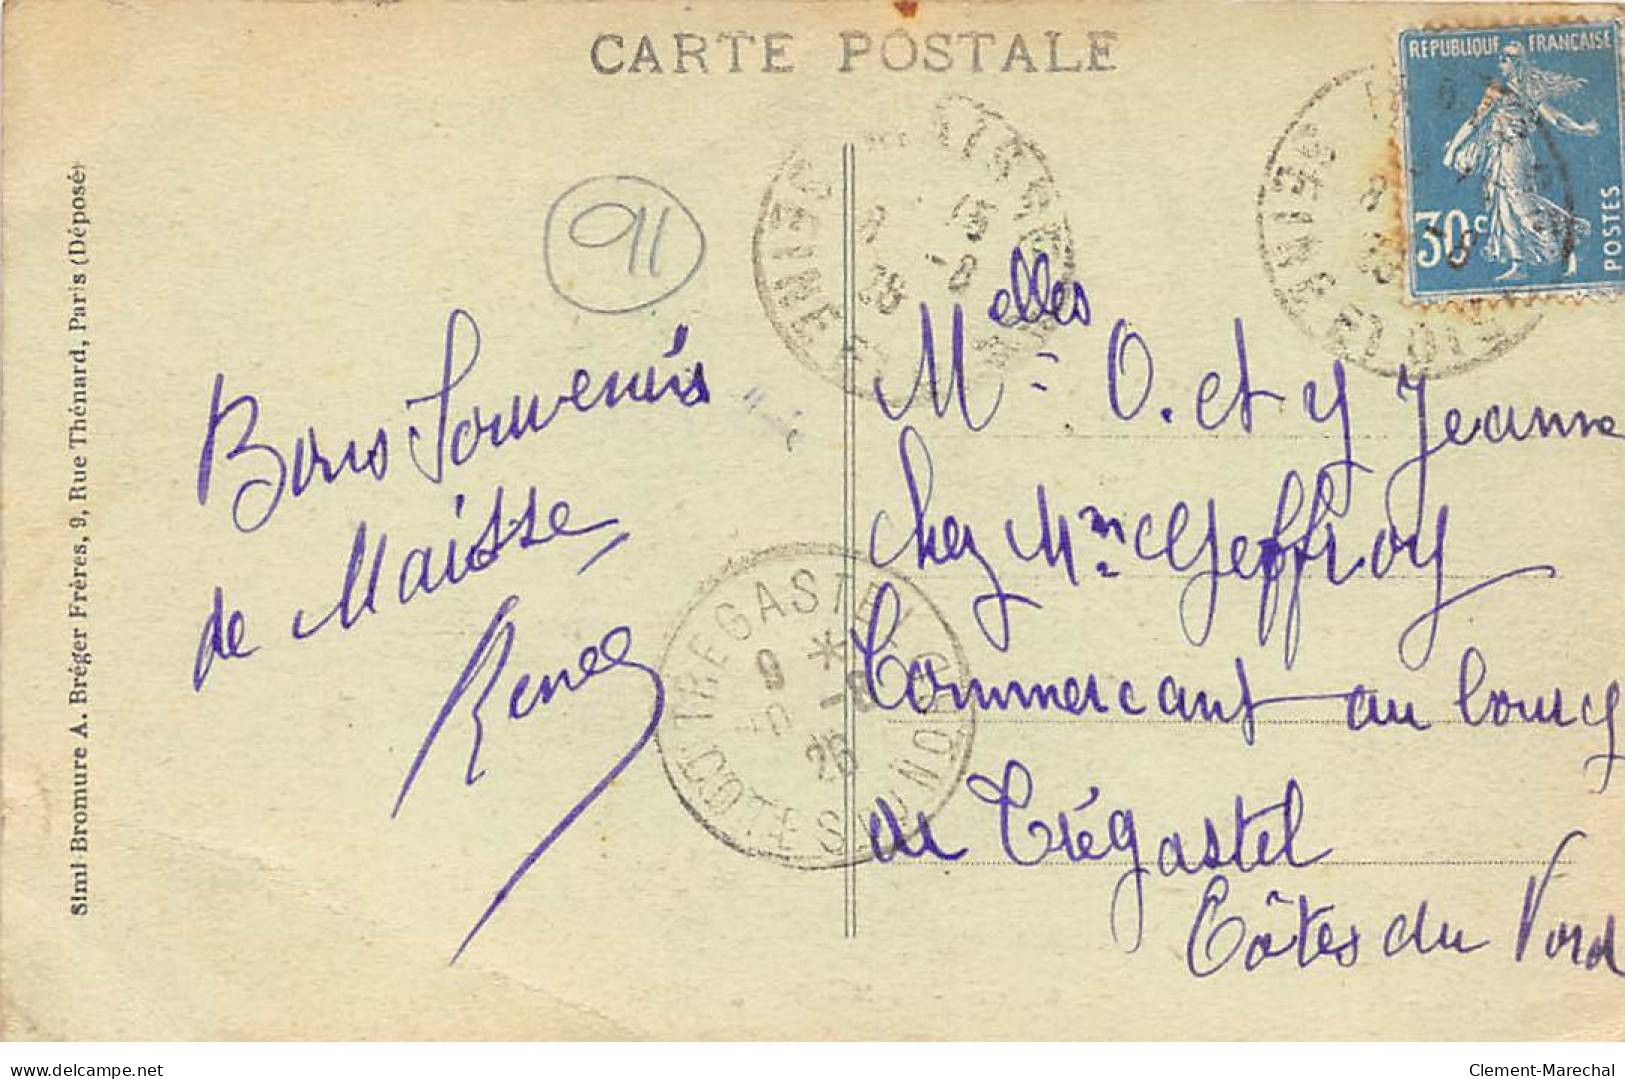 CARTE POSTALE
REPUBLIQUE FRANÇAISE
30c
POSTES
91
Simi-Bromure A. Bréger Frères, 9, Rue Thénard, Paris (Déposé)
Bons Souvenirs
de Maisse
Renée
Melles O. et Y Jeanne
Chez Mme Geffroy
Commercant au bourg
de Trégastel
Côtes du Nord
TREGASTEL
COTES DU NORD
9
26
SEINE ET OISE
delcampe.net
Clement-Marechal